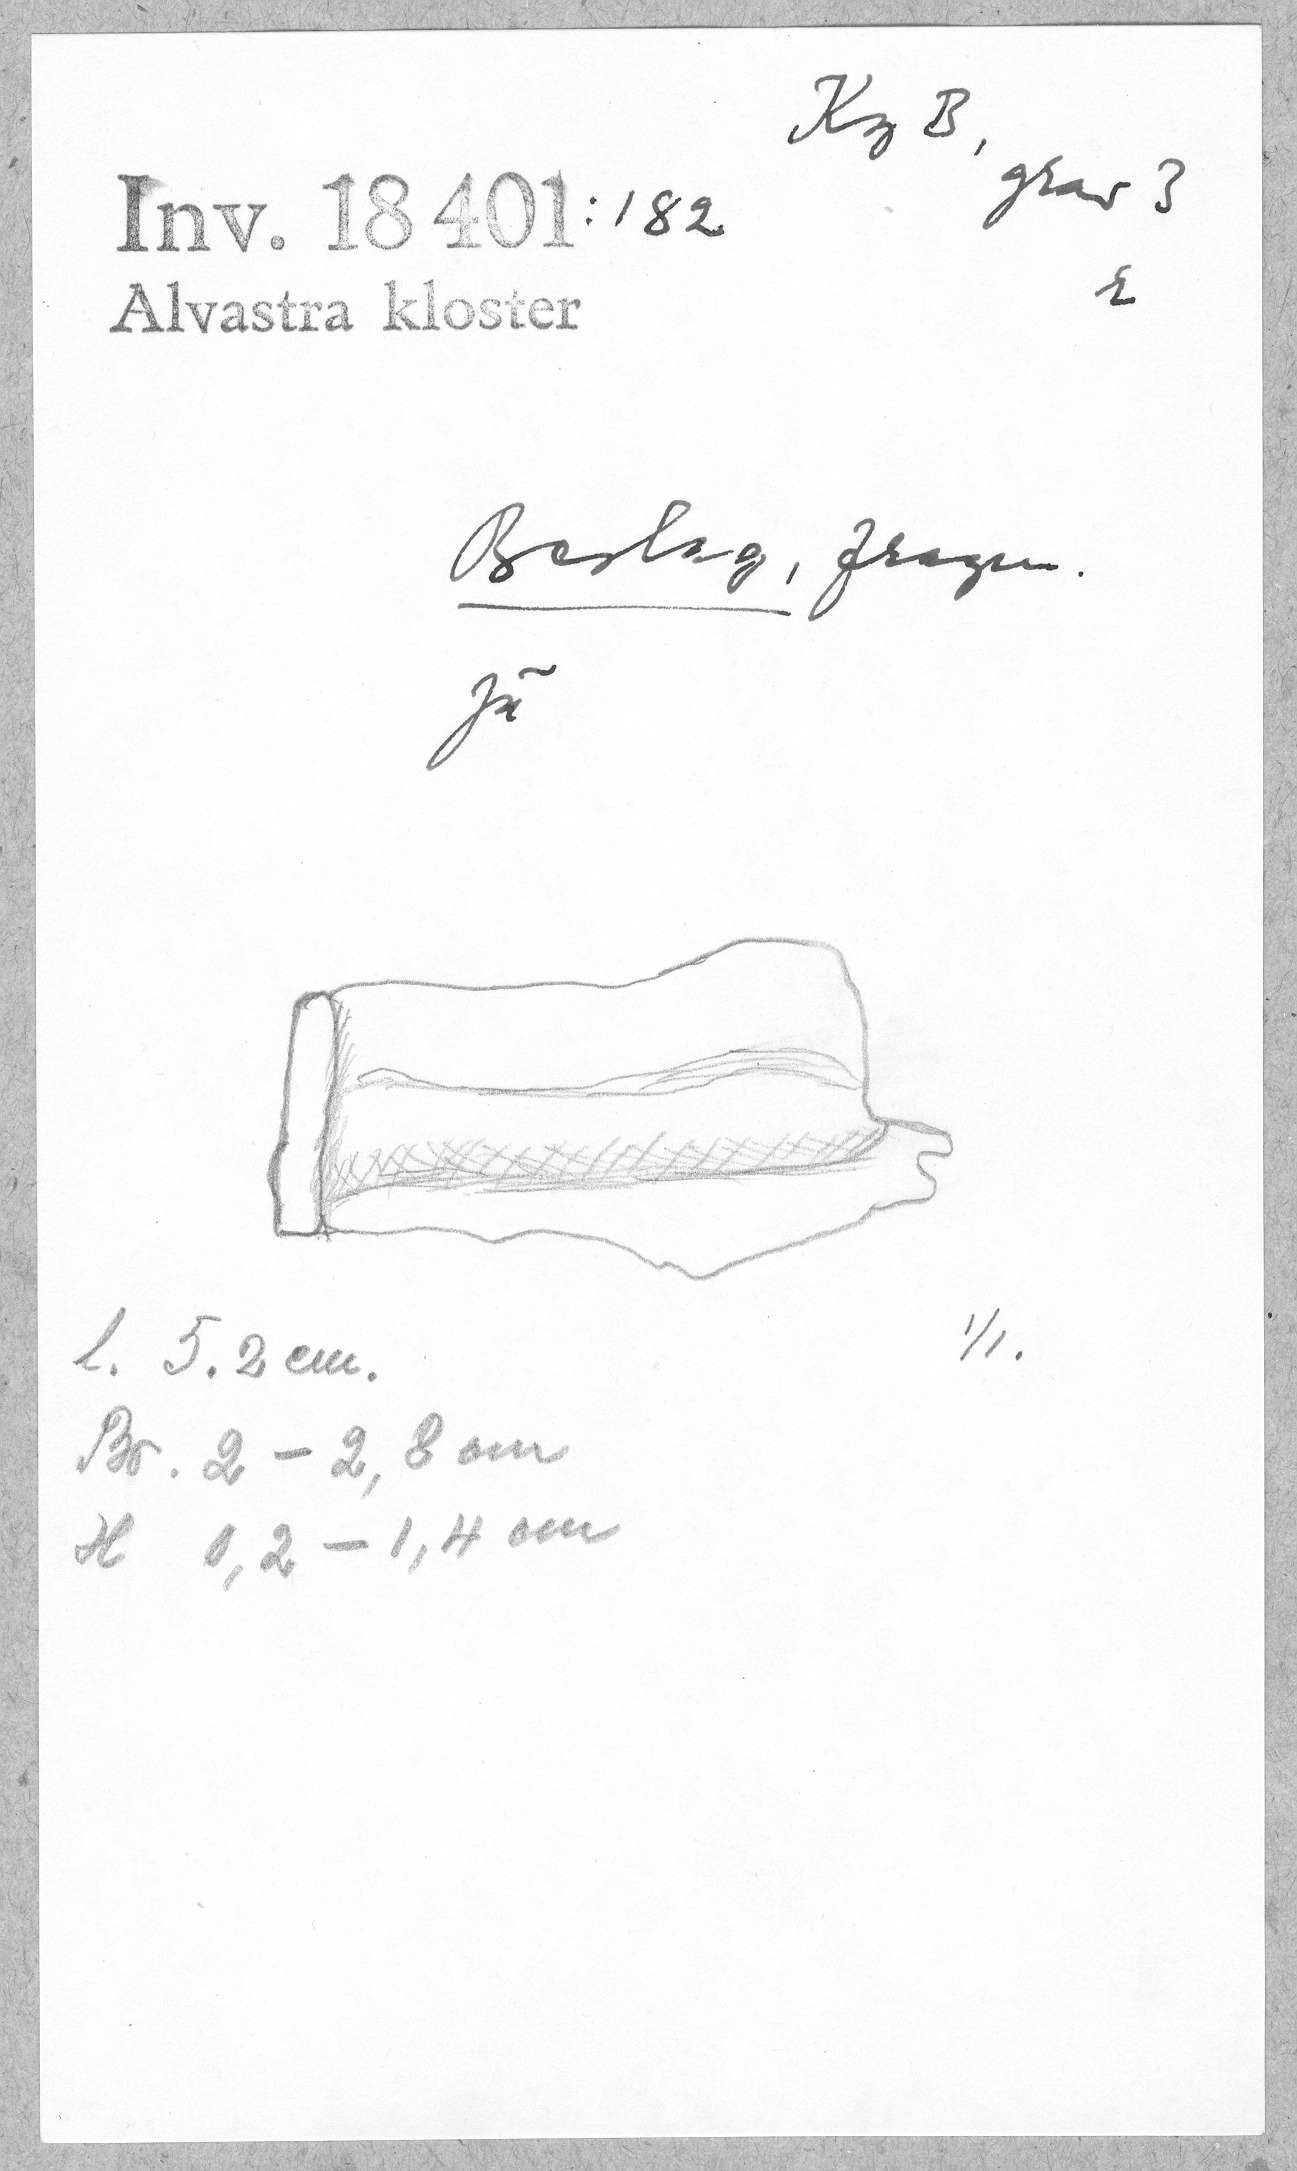 Kg B,
grav 3
E
Inv. 18 401:182
Alvastra kloster
Beslag, fragm.
Jä
l. 5.2 cm.
1/1.
Br. 2 - 2,8 cm
H 0,2 - 1,4 cm